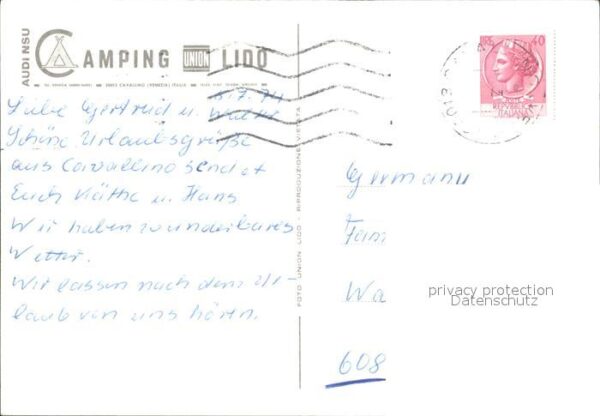 AUDI NSU
CAMPING UNION LIDO
8.7.74
Liebe Gertrud u.
Schöne Urlaubsgrüße
aus Cavallino sendet
Euch Käthe u. Hans
Wir haben wunderbares
Wetter.
Wir lassen nach dem Ur-
laub von uns hören.
FOTO UNION LIDO - RIPRODUZIONE VIETATA
40
REPUBBLICA
ITALIANA
Germani
Fam
Wa
608
privacy protection
Datenschutz